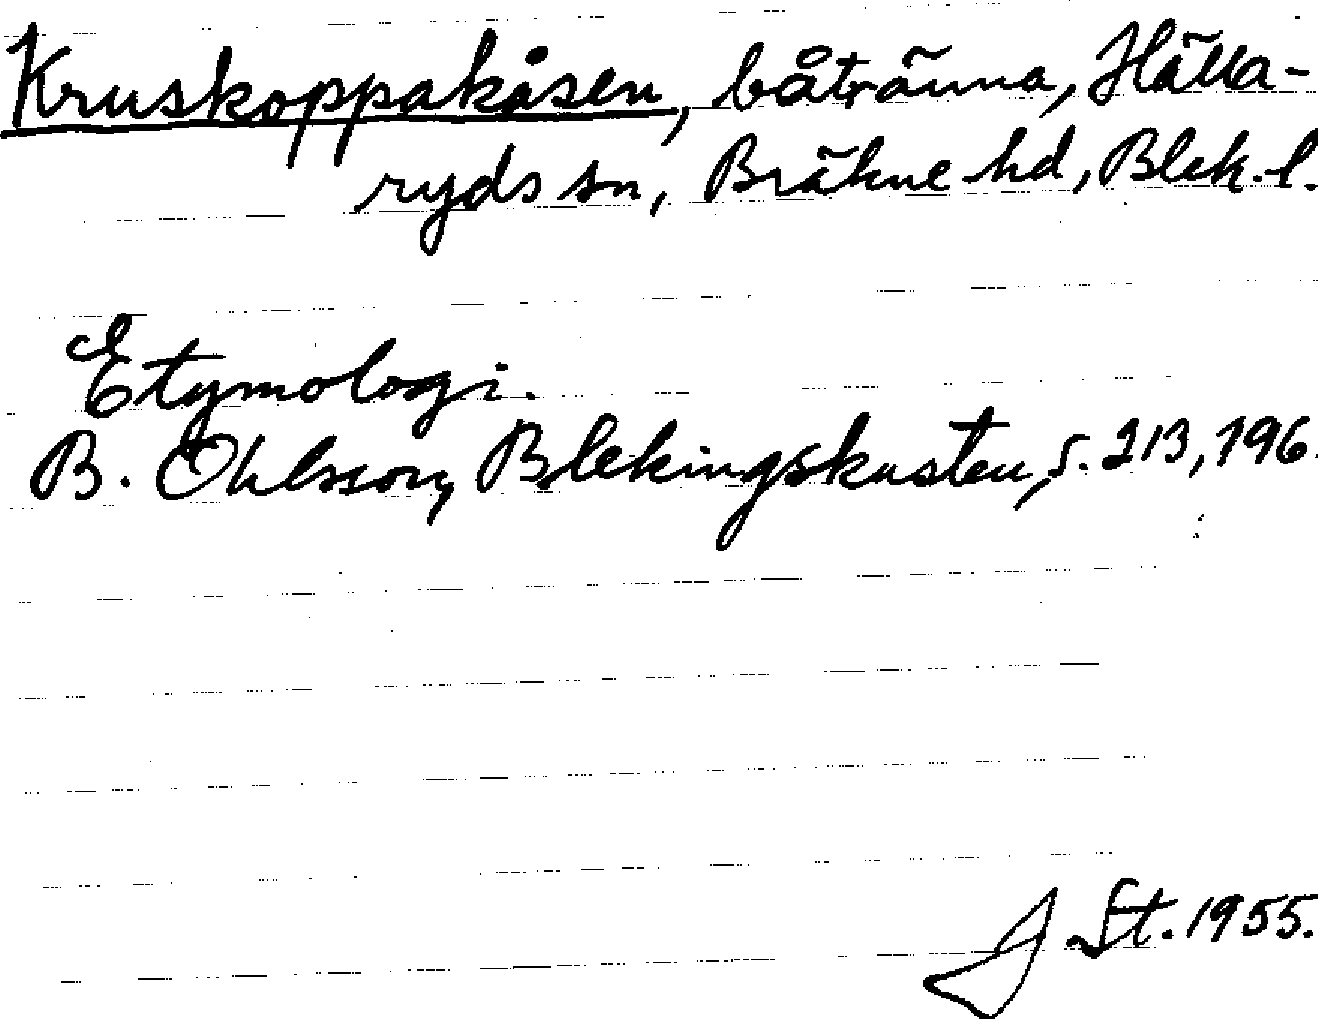 Kruskoppakåsen, båtränna, Hälla-
ryds sn, Bräkne hd, Blek. l.
Etymologi.
B. Ohlsson, Blekingskusten, s. 213, 196.
J. St. 1955.